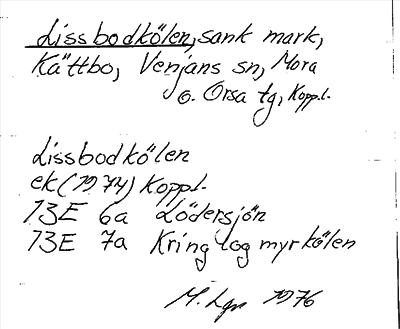 Lissbodkölen, sank mark,
Kättbo, Venjans sn, Mora
o. Orsa tg, Koppl.
Lissbodkölen
ek (1974) Koppl.
13E 6a Lödersjön
13E 7a Kringlogmyrkölen
M. Lgn 1976